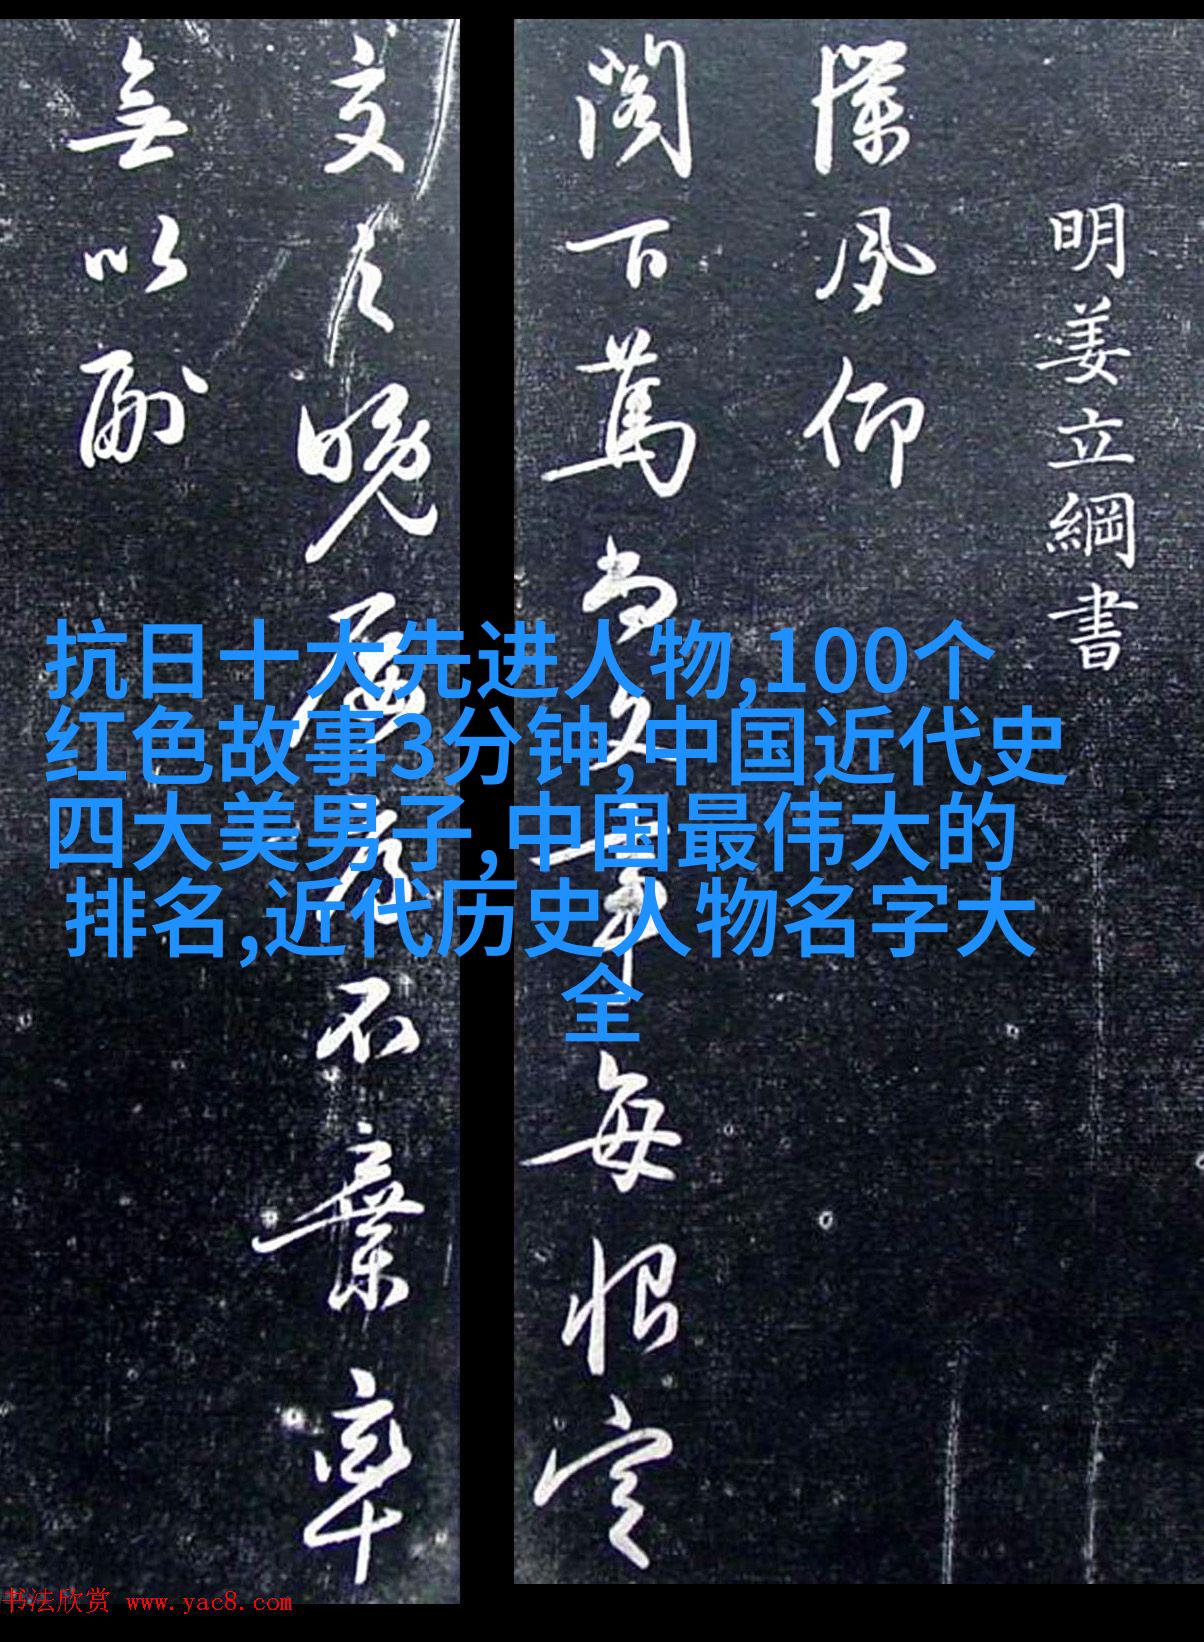 明姜立綱書
仰
閣下萬
每恨定
交
晚
不棄率
無以副
抗日十大先进人物,100个
红色故事3分钟,中国近代史
四大美男子,中国最伟大的
排名,近代历史人物名字大
全
书法欣赏 www.yac8.com